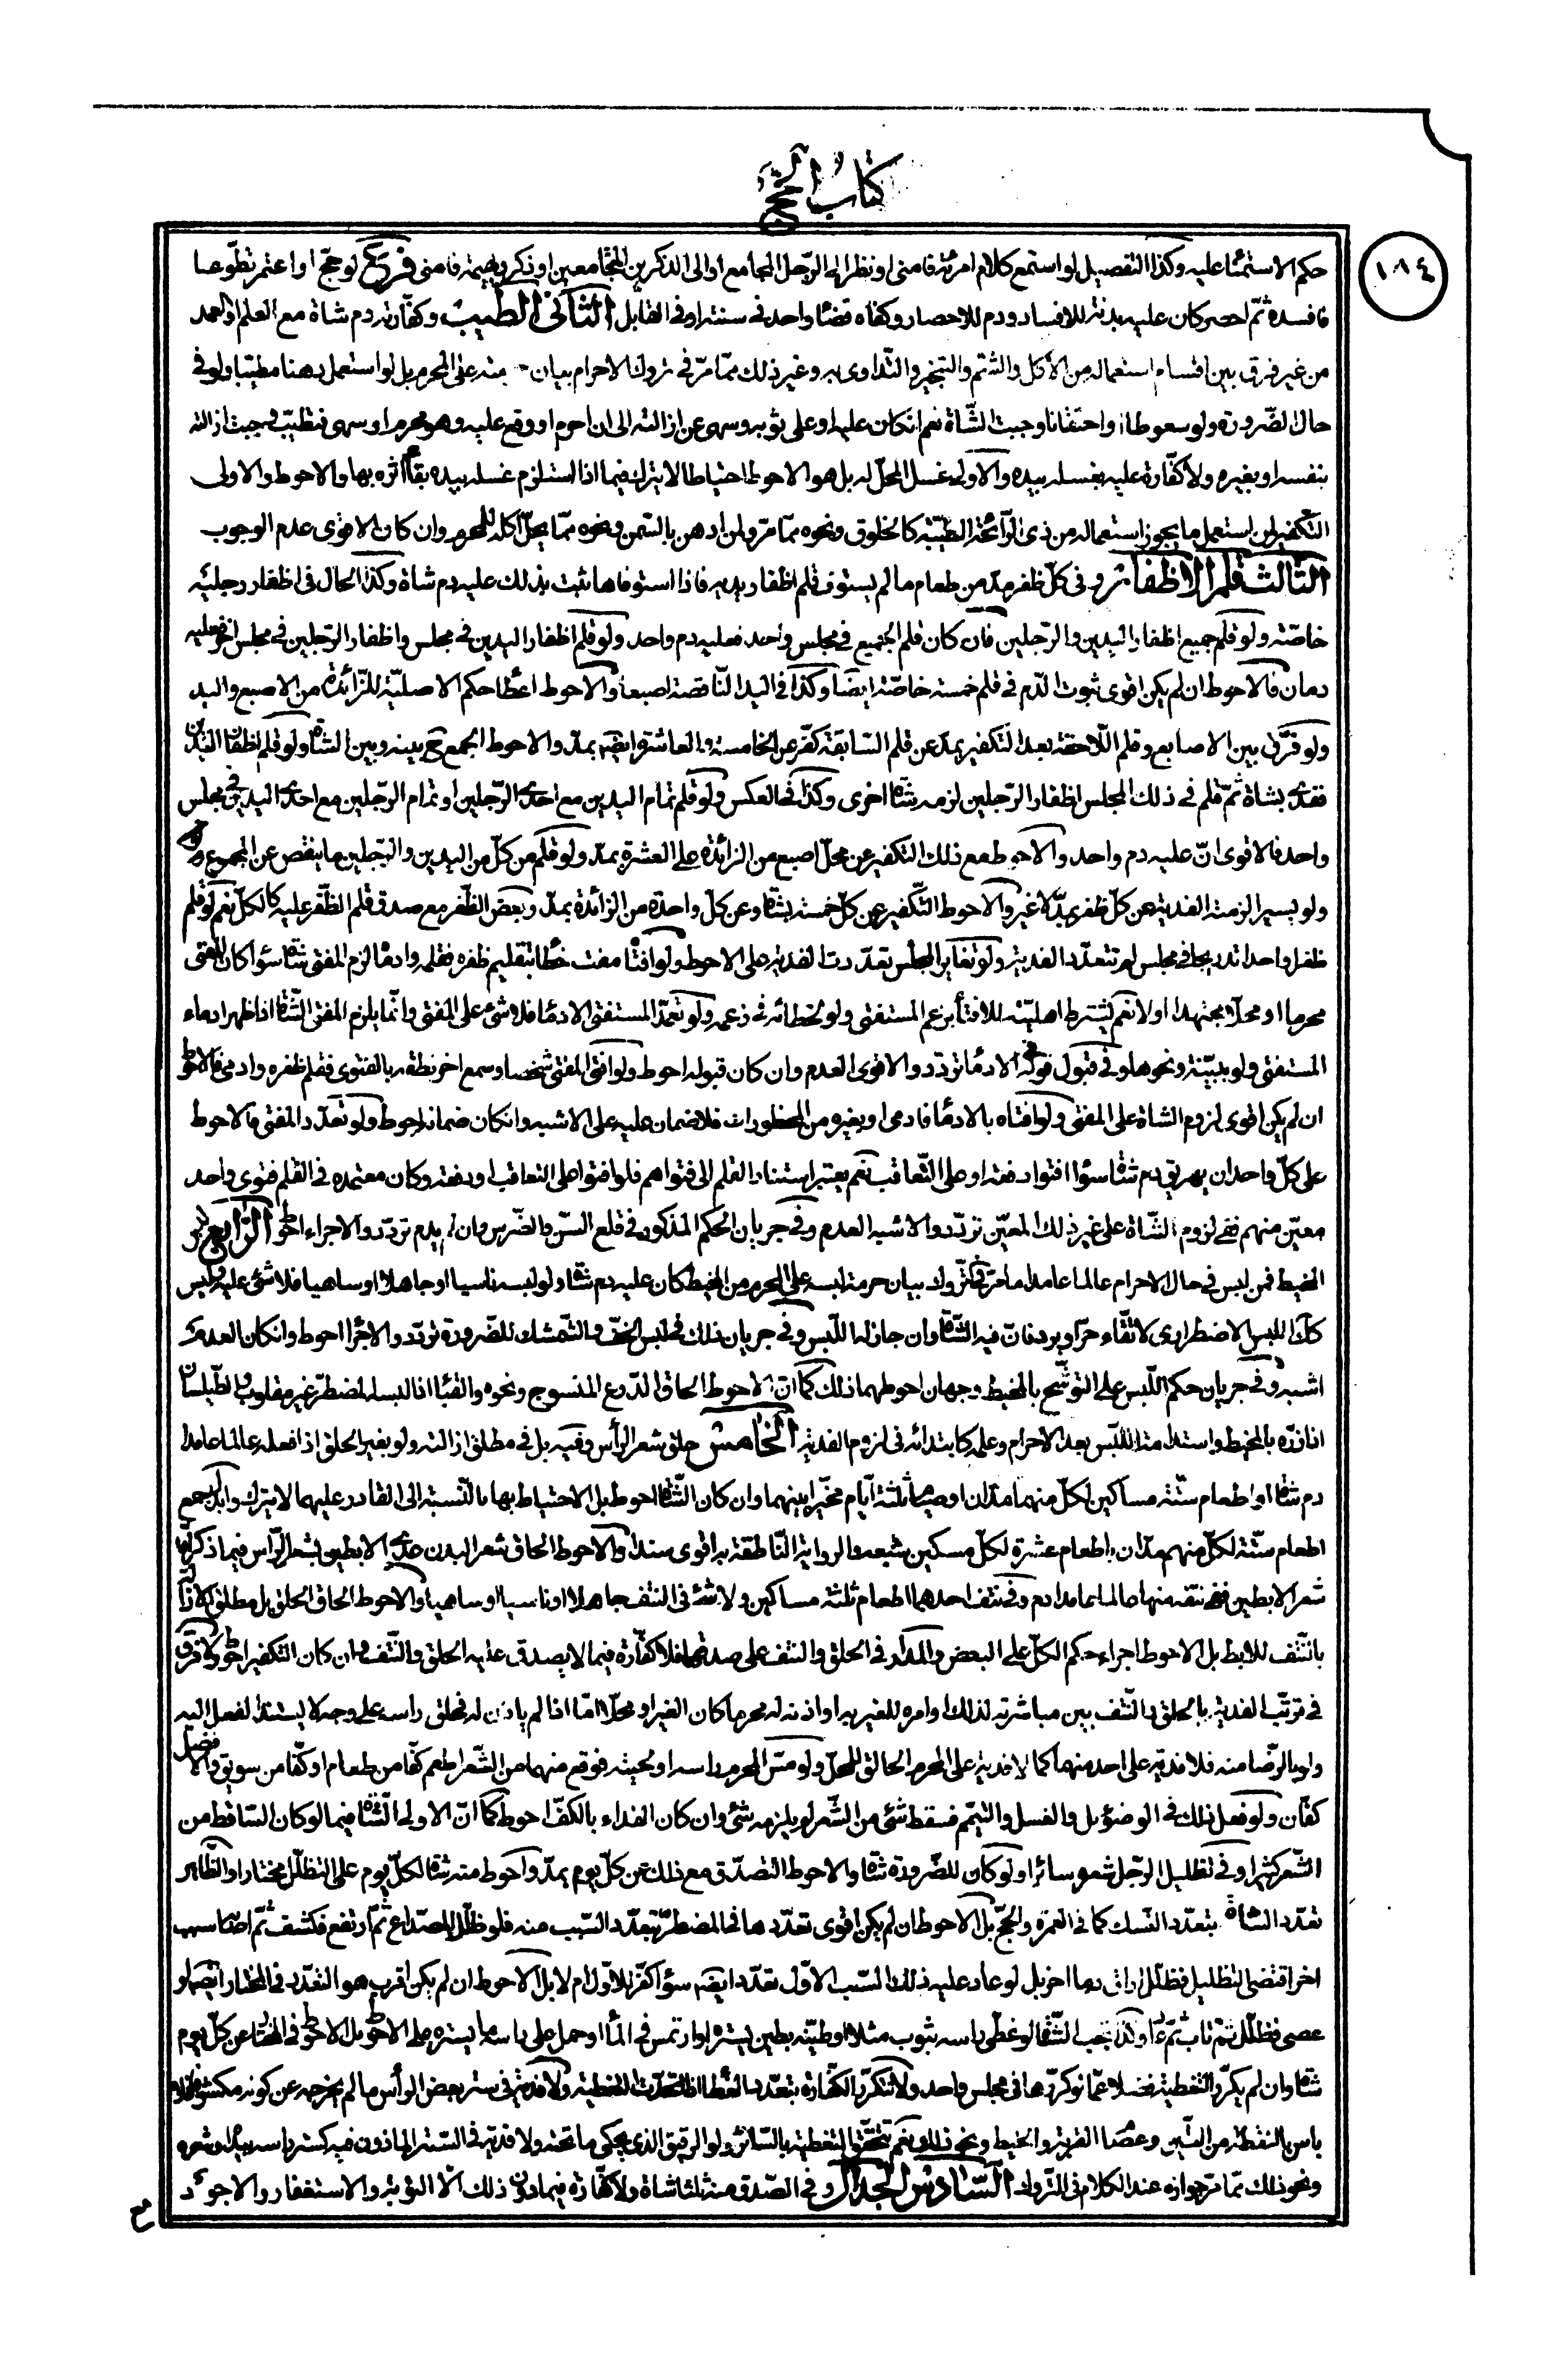 كتاب الحج
١٨٤
حكم الاستمناء عليه وكذا التفصيل لو استمع كلام امرئة فامنى او نظر الى الرجل المجامع او الى الذكرين المجامعين او ذكر بهيمة فامنى فرع لو حج او اعتمر تطوعا
فافسده ثم احصر كان عليه بدنة للافساد ودم للاحصار وكفاه قضاء واحد في سنته او في القابل الثاني الطيب وكفارته دم شاة مع العلم والعمد
من غير فرق بين اقسام استعماله من الاكل والشم والتبخير والتداوى به وغير ذلك مما مر في تروك الاحرام بيان منه على المحرم بل لو استعمل دهنا مطيبا ولو في
حال الضرورة ولو سعوطا او احتقانا وجبت الشاة نعم ان كان عليه او على ثوبه وسهى عن ازالته الى ان احرم او وقع عليه وهو محرم او سهى فتطيب وجبت ازالته
بنفسه او بغيره ولا كفارة عليه بغسله بيده والاولى غسل المحل له بل هو الاحوط احتياطا لا يترك فيما اذا استلزم غسله بيده بقاء اثره بها والاحوط والاولى
التكفير لمن استعمل ما يجوز استعماله من ذى الرائحة الطيبة كالخلوق ونحوه مما مر ولمن ادهن بالسمن ونحوه مما يحل اكله للمحرم وان كان الاقوى عدم الوجوب
الثالث قلم الاظفار وفي كل ظفر مد من طعام ما لم يستوف قلم اظفار يديه فاذا استوفاها ثبت بذلك عليه دم شاة وكذا الحال في اظفار رجليه
خاصة ولو قلم جميع اظفار اليدين والرجلين فان كان قلم الجميع في مجلس واحد فعليه دم واحد ولو قلم اظفار اليدين في مجلس واظفار الرجلين في مجلس اخر فعليه
دمان فالاحوط ان لم يكن اقوى ثبوت الدم في قلم خمسة خاصة ايضا وكذا في اليد الناقصة اصبعا والاحوط اعطاء حكم الاصلية للزائدة من الاصبع واليد
ولو فرق بين الاصابع وقلم اللاحقة بعد التكفير بمد عن قلم السابقة كفر عن الخامسة والعاشرة ايضا بمد والاحوط الجمع ح بينه وبين الشاة ولو قلم اظفار اليدين
ففدى بشاة ثم قلم في ذلك المجلس اظفار الرجلين لزمه شاة اخرى وكذا في العكس ولو قلم تمام اليدين مع احدى الرجلين او تمام الرجلين مع احدى اليدين في مجلس
واحد فالاقوى ان عليه دم واحد والاحوط مع ذلك التكفير عن محل اصبع من الزائدة على العشرة بمد ولو قلم من كل من اليدين والرجلين ما ينقص عن المجموع
ولو بيسير الزمته الفدية عن كل ظفر بمد لا غير والاحوط التكفير عن كل خمسة بشاة وعن كل واحدة من الزائدة بمد وبعض الظفر مع صدق قلم الظفر عليه كالكل نعم لو قلم
ظفرا واحدا تدريجا في مجلس لم تتعدد الفدية ولو تغاير المجلس تعددت الفدية على الاحوط ولو افتاه مفت خطا بتقليم ظفره فقلمه وادماه لزم المفتى شاة سواء كان المفتى
محرما او محلا مجتهدا او لا نعم يشترط اهليته للافتاء بزعم المستفتى ولو لخطائه في زعمه ولو تعمد المستفتى الادماء فلا شئ على المفتى وانما يلزم المفتى الشاة اذا ظهر ادماء
المستفتى ولو ببينة ونحوها وفي قبول قوله في الادماء تردد والاقوى العدم وان كان قبوله احوط ولو افتى المفتى شخصا وسمع اخر نطقه بالفتوى فقلم ظفره وادمى فالاحوط
ان لم يكن اقوى لزوم الشاة على المفتى ولو افتاه بالادماء فادمى او بغيره من المحظورات فلا ضمان عليه على الاشبه وان كان ضمانه احوط ولو تعدد المفتى فالاحوط
على كل واحد ان يهريق دم شاة سواء افتوا دفعة او على التعاقب نعم يعتبر استناد القلم الى فتواهم فلو افتوا على التعاقب او دفعة وكان معتمده في القلم فتوى واحد
معين منهم ففي لزوم الشاة على غير ذلك المعين تردد والاشبه العدم وفي جريان الحكم المذكور في قلع السن والضرس وان لم يدم تردد والاجراء احوط الرابع لبس
المخيط فمن لبس في حال الاحرام عالما عامدا ما مر في تروك بيان حرمة لبسه على المحرم من المخيط كان عليه دم شاة ولو لبسه ناسيا او جاهلا او ساهيا فلا شئ عليه وليس
كك اللبس الاضطرارى لاتقاء حر او برد فان فيه الشاة وان جاز له اللبس وفي جريان ذلك في لبس الخف والشمشك للضرورة تردد والاجراء احوط وان كان العدم
اشبه وفي جريان حكم اللبس على التوشح بالمخيط وجهان احوطهما ذلك كما ان الاحوط الحاق الدرع المنسوج ونحوه والقباء اذا لبسه المضطر غير مقلوب والطيلسان
اذا زره بالمخيط واستدامة اللبس بعد الاحرام وعلمه كابتدائه في لزوم الفدية الخامس حلق شعر الراس وفيه بل في مطلق ازالته ولو بغير الحلق اذا فعله عالما عامدا
دم شاة او اطعام ستة مساكين لكل منهم مدان او صيام ثلثة ايام مخيرا بينهما وان كان الشاة احوط بل الاحتياط بها بالنسبة الى القادر عليها لا يترك وابدل جمع
اطعام ستة لكل منهم مدان باطعام عشرة لكل مسكين شبعه والرواية الناطقة به اقوى سندا والاحوط الحاق شعر البدن عدى الابطين بشعر الراس فيما ذكر اما
شعر الابطين ففي نتفه منهما عالما عامدا دم وفي نتف احدهما اطعام ثلثة مساكين ولا شئ في النتف جاهلا او ناسيا او ساهيا والاحوط الحاق الحلق بل مطلق الازالة
بالنتف للابط بل الاحوط اجراء حكم الكل على البعض والمدار في الحلق والنتف على صدقهما فلا كفارة فيما لا يصدق عليه الحلق والنتف وان كان التكفير احوط ولا فرق
في ترتب الفدية بالحلق والنتف بين مباشرته لذلك او امره للغير به او اذنه له محرما كان الغير او محلا اما اذا لم ياذن له فحلق راسه على وجه لا يستند الفعل اليه
ولو بالرضا منه فلا فدية على احد منهما كما لا فدية على المحرم الحالق للمحل ولو مس المحرم راسه او لحيته فوقع منهما من الشعر اطعم كفا من طعام او كفا من سويق والافضل
كفان ولو فعل ذلك في الوضوء بل والغسل والتيمم فسقط شئ من الشعر لم يلزمه شئ وان كان الفداء بالكف احوط كما ان الاولى الشاة فيما لو كان الساقط من
الشعر كثيرا وفي تظليل الرجل شعره سائرا ولو كان للضرورة شاة والاحوط التصدق مع ذلك عن كل يوم بمد واحوط منه شاة لكل يوم على التظلل مختارا والظاهر
تعدد الشاة بتعدد النسك كما في العمرة والحج بل الاحوط ان لم يكن اقوى تعددها في المضطر بتعدد السبب منه فلو ظلل للصداع ثم ارتفع فكشف ثم اصابه سبب
اخر اقتضى التظليل فظلل اراق دما اخر بل لو عاد عليه ذلك السبب الاول تعدد ايضا سواء كفر للاول ام لا بل الاحوط ان لم يكن اقرب هو التعدد في المختار ايضا لو
عصى فظلل ثم تاب ثم عاد وكذا تجب الشاة لو غطى راسه بثوب مثلا او طينه بطين يستره او ارتمس في الماء او حمل على راسه ما يستره على الاحوط بل الاحوط في المختار عن كل يوم
شاة وان لم يكرر التغطية فضلا عما لو كررها في مجلس واحد ولا تتكرر الكفارة بتعدد الغطاء اذا اتحدت التغطية ولا فدية في ستر بعض الراس ما لم يخرجه عن كونه مكشوفا فلا
باس بالتغطية من السير وعصام القربة والخيط ونحو ذلك نعم تتحقق التغطية بالساتر ولو الرقيق الذى يحكى ما تحته ولا فدية في الستر الماذون فيه كستر راسه بيده او شعره
ونحو ذلك مما مر جوازه عند الكلام في التروك السادس الجدال وفي الصدق منه ثلثا شاة ولا كفارة فيما دون ذلك الا التوبة والاستغفار والاجود